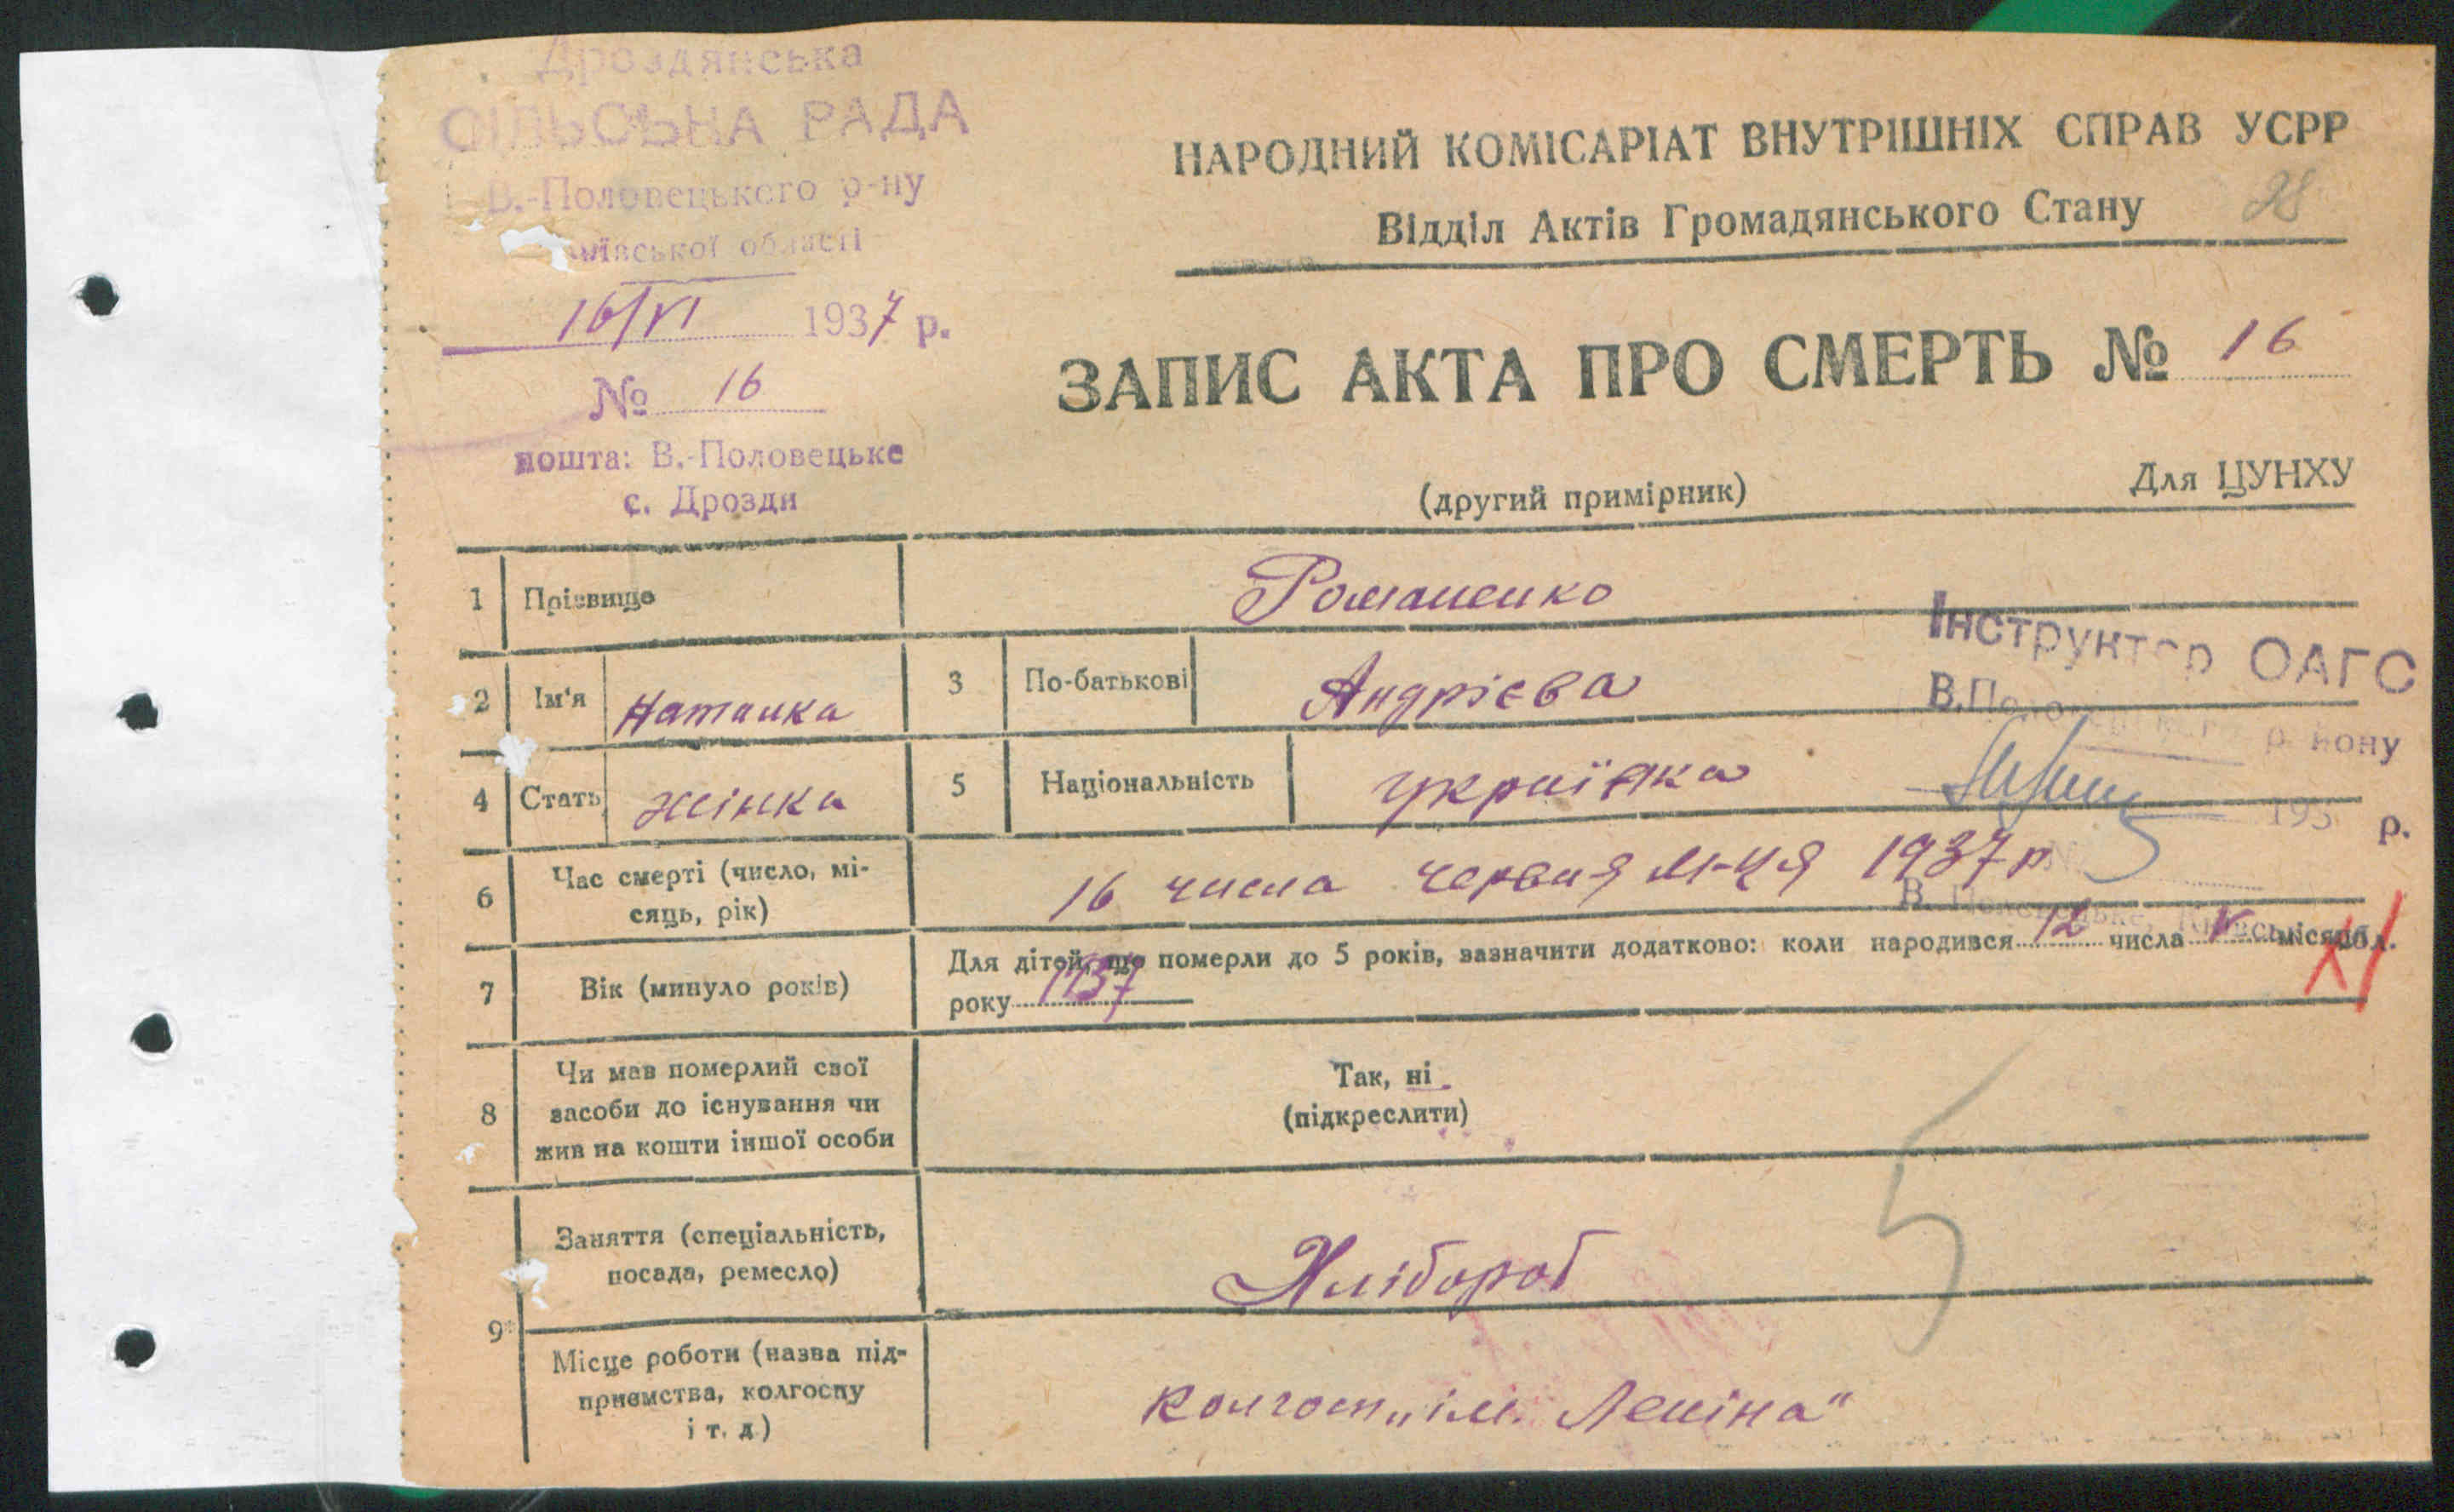 Дроздянська
СІЛЬСЬКА РАДА
В.-Половецького р-ну
иївської області
16/VI 1937 р.
№ 16
пошта: В.-Половецьке
с. Дрозди
НАРОДНИЙ КОМІСАРІАТ ВНУТРІШНІХ СПРАВ УСРР
Відділ Актів Громадянського Стану 28
ЗАПИС АКТА ПРО СМЕРТЬ № 16
(другий примірник)
Для ЦУНХУ
1 Прізвище Романенко
Інструктор ОАГС
В.Половецького району
193 р.
№
В. Половецьке, Київськ. обл.
2 Ім'я Наталка 3 По-батькові Андрієва
4 Стать жінка 5 Національність українка
6 Час смерті (число, мі-
сяць, рік)
16 числа червня м-ця 1937 р
7 Вік (минуло років)
Для дітей, що померли до 5 років, зазначити додатково: коли народився 12 числа V місяця
року 1937
XI
8 Чи мав померлий свої
засоби до існування чи
жив на кошти іншої особи
Так, ні
(підкреслити)
5
9* Заняття (спеціальність,
посада, ремесло)
Хлібороб
Місце роботи (назва під-
приємства, колгоспу
і т. д)
Колгосп „ім. Леніна"